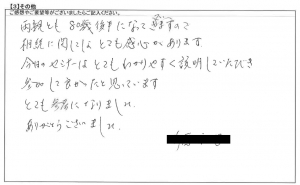 【3】その他
ご感想やご要望等がございましたらご記入ください。
両親とも80歳後半になって来ますので
相続に関してはとても感心があります。
今日のセミナーはとてもわかりやすく説明していただき
参加して良かったと思っています
とても参考になりました。
ありがとうございました。